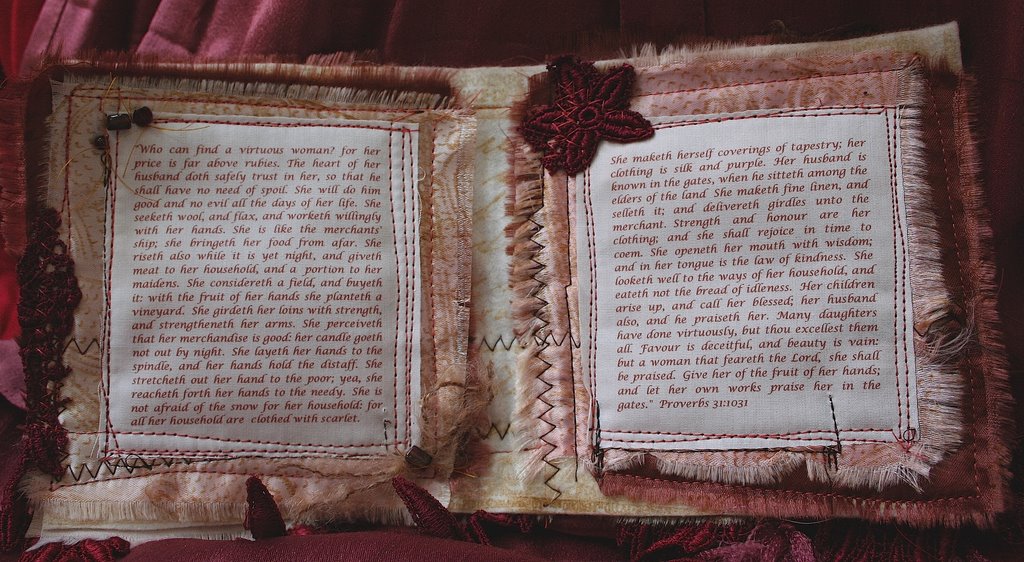 "Who can find a virtuous woman? for her
price is far above rubies. The heart of her
husband doth safely trust in her, so that he
shall have no need of spoil. She will do him
good and no evil all the days of her life. She
seeketh wool, and flax, and worketh willingly
with her hands. She is like the merchants'
ship; she bringeth her food from afar. She
riseth also while it is yet night, and giveth
meat to her household, and a portion to her
maidens. She considereth a field, and buyeth
it: with the fruit of her hands she planteth a
vineyard. She girdeth her loins with strength,
and strengtheneth her arms. She perceiveth
that her merchandise is good: her candle goeth
not out by night. She layeth her hands to the
spindle, and her hands hold the distaff. She
stretcheth out her hand to the poor; yea, she
reacheth forth her hands to the needy. She is
not afraid of the snow for her household: for
all her household are clothed with scarlet.
She maketh herself coverings of tapestry; her
clothing is silk and purple. Her husband is
known in the gates, when he sitteth among the
elders of the land She maketh fine linen, and
selleth it; and delivereth girdles unto the
merchant. Strength and honour are her
clothing; and she shall rejoice in time to
coem. She openeth her mouth with wisdom;
and in her tongue is the law of kindness. She
looketh well to the ways of her household, and
eateth not the bread of idleness. Her children
arise up, and call her blessed; her husband
also, and he praiseth her. Many daughters
have done virtuously, but thou excellest them
all. Favour is deceitful, and beauty is vain:
but a woman that feareth the Lord, she shall
be praised. Give her of the fruit of her hands;
and let her own works praise her in the
gates." Proverbs 31:1031